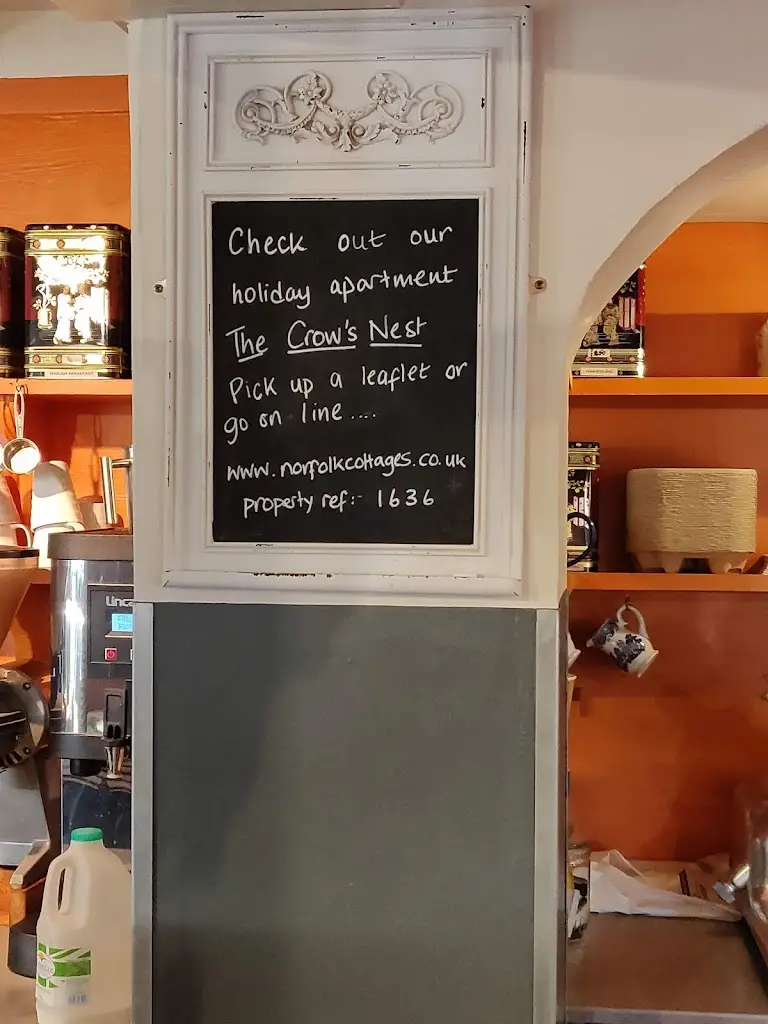 Check out our
holiday apartment
The Crow's Nest
Pick up a leaflet or
go on line....
www.norfolkcottages.co.uk
property ref:- 1636
ENGLISH BREAKFAST
Linca